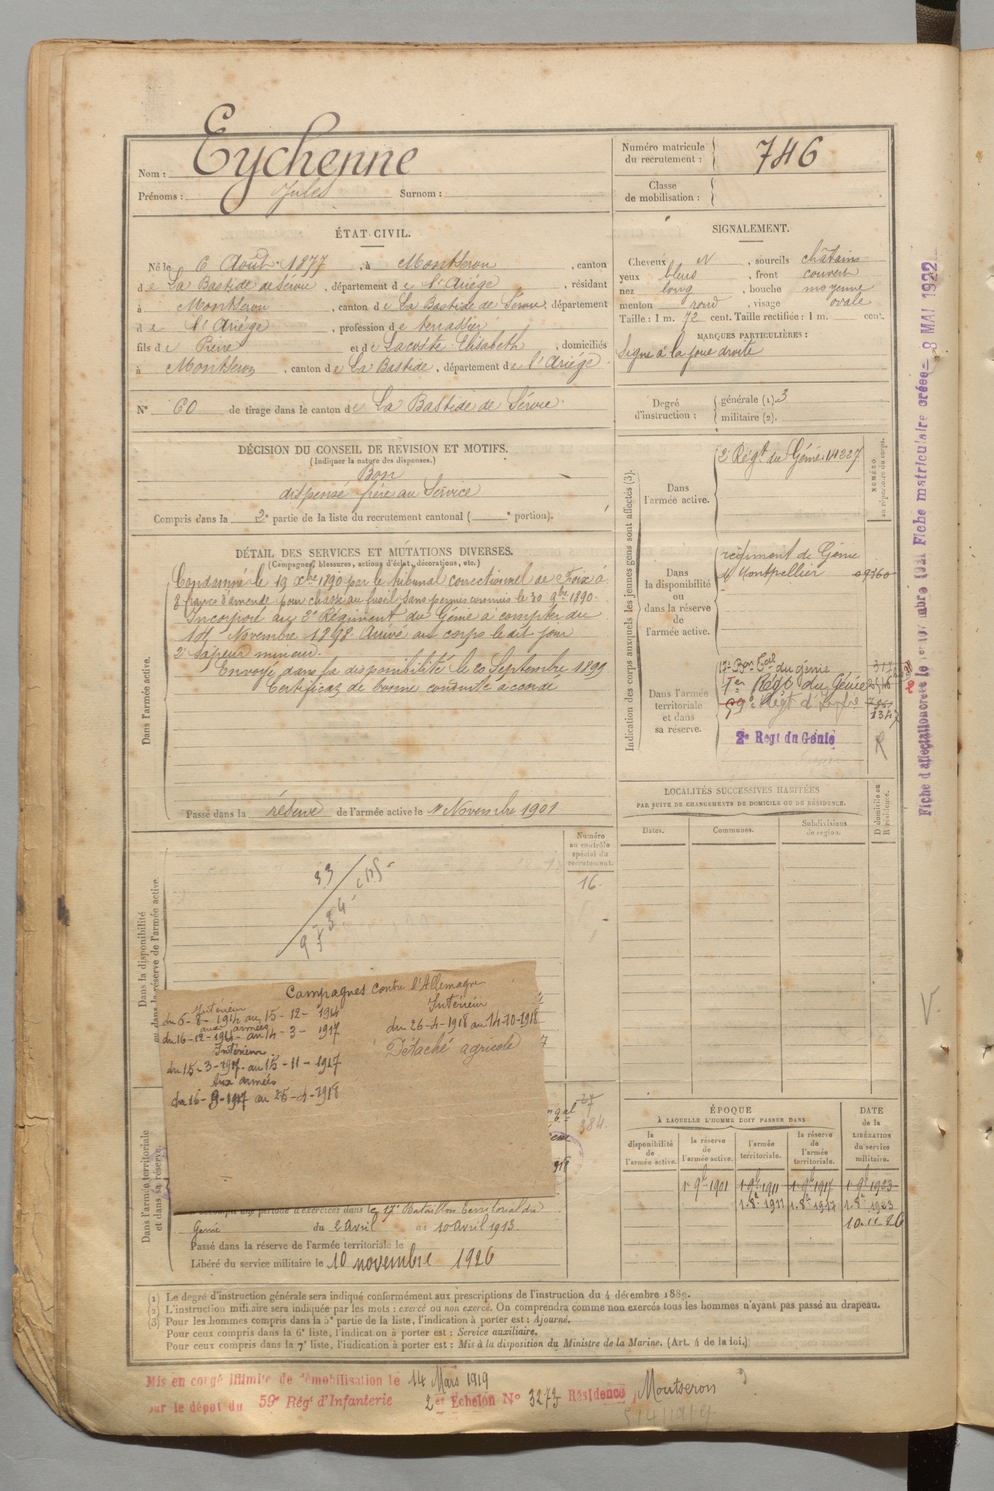 Nom : Eychenne
Prénoms : Jules Surnom :
Numéro matricule du recrutement : 746
Classe de mobilisation :
ÉTAT CIVIL.
Né le 6 Août 1877, à Montséron, canton
de La Bastide de Sérou, département de l'Ariège, résidant
à Montséron, canton de La Bastide de Sérou, département
de l'Ariège, profession de terrassier
fils de Pierre et de Lacoste Elisabeth, domiciliés
à Montseron, canton de La Bastide, département de l'Ariège
N° 60 de tirage dans le canton de La Bastide de Sérou.
SIGNALEMENT.
Cheveux N, sourcils châtains
yeux bleus, front couvert
nez long, bouche moyenne
menton rond, visage ovale
Taille : 1 m. 72 cent. Taille rectifiée : 1 m. cent.
MARQUES PARTICULIÈRES :
Signe à la joue droite
Degré d'instruction : générale (1). 3
militaire (2).
DÉCISION DU CONSEIL DE RÉVISION ET MOTIFS.
(Indiquer la nature des dispenses.)
Bon
dispensé frère au Service
Compris dans la 2e partie de la liste du recrutement cantonal ( e portion).
DÉTAIL DES SERVICES ET MUTATIONS DIVERSES.
(Campagnes, blessures, actions d'éclat, décorations, etc.)
Dans l'armée active.
Condamné le 19 Xbre 1890 par le tribunal correctionnel de Foix à
8 francs d'amende pour chasse au fusil sans permis commis le 30 9bre 1890.
Incorporé au 2e Régiment du Génie à compter du
14 Novembre 1898. Arrivé au corps le dit jour
2e sapeur mineur.
Envoyé dans la disponibilité le 20 Septembre 1899
Certificat de bonne conduite accordé
Passé dans la réserve de l'armée active le 1er Novembre 1901
Indication des corps auxquels les jeunes gens sont affectés (3).
NUMÉRO au répertoire du corps.
Dans l'armée active.
2e Régt du Génie 14227
Dans la disponibilité ou dans la réserve de l'armée active.
régiment de Génie
à Montpellier 09760
Dans l'armée territoriale et dans sa réserve.
17e Bon Terl du génie 317
1er Régt du Génie
59e Régt d'Infrie
1347
2e Régt du Génie
R
LOCALITÉS SUCCESSIVES HABITÉES
PAR SUITE DE CHANGEMENTS DE DOMICILE OU DE RÉSIDENCE.
Dates. Communes. Subdivisions de région. D domicile ou R résidence.
Dans la disponibilité ou dans la réserve de l'armée active.
Numéro au contrôle spécial du recrutement.
16
33
Campagnes contre l'Allemagne
Intérieur
du 6-8-1914 au 15-12-1914
aux armées
du 16-12-1914 au 14-3-1917
Intérieur
du 15-3-1917 au 15-11-1917
Aux armées
du 16-9-1917 au 25-4-1918
Intérieur
du 26-4-1918 au 14-10-1918
Détaché agricole
384.
Dans l'armée territoriale et dans sa réserve.
A accompli une période d'exercices dans le 17e Bataillon territorial du
Génie du 2 Avril au 10 Avril 1913.
Passé dans la réserve de l'armée territoriale le
Libéré du service militaire le 10 novembre 1926
ÉPOQUE
À LAQUELLE L'HOMME DOIT PASSER DANS
la disponibilité de l'armée active.
la réserve de l'armée active.
l'armée territoriale.
la réserve de l'armée territoriale.
DATE de la LIBÉRATION du service militaire.
1er 9bre 1901 1er 9bre 1911 1er 9bre 1917 1er 9bre 1923
1er 8bre 1911 1er 8bre 1917 1er 8bre 1923
10-11-26
(1) Le degré d'instruction générale sera indiqué conformément aux prescriptions de l'instruction du 4 décembre 1889.
(2) L'instruction militaire sera indiquée par les mots : exercé ou non exercé. On comprendra comme non exercés tous les hommes n'ayant pas passé au drapeau.
(3) Pour les hommes compris dans la 5e partie de la liste, l'indication à porter est : Ajourné.
Pour ceux compris dans la 6e liste, l'indication à porter est : Service auxiliaire.
Pour ceux compris dans la 7e liste, l'indication à porter est : Mis à la disposition du Ministre de la Marine. (Art. 4 de la loi.)
Mis en congé illimité de démobilisation le 14 Mars 1919
par le dépôt du 59e Rég' d'Infanterie 2e Echelon N° 3273 Résidence Montseron
5/4/1919
Fiche matriculaire créée - 8 MAI 1922
V.